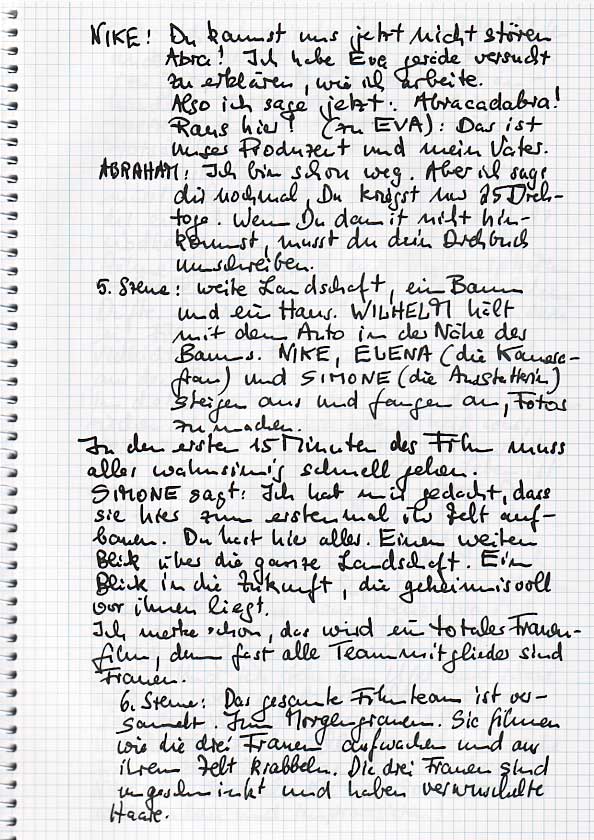 NIKE: Du kannst uns jetzt nicht stören
Abra! Ich habe Eva gerade versucht
zu erklären, wie ich arbeite.
Also ich sage jetzt: Abracadabra!
Raus hier! (zu EVA): Das ist
unser Produzent und mein Vater.
ABRAHAM: Ich bin schon weg. Aber ich sage
dir nochmal, Du kriegst nur 25 Dreh-
tage. Wenn Du damit nicht hin-
kommst, musst du dein Drehbuch
umschreiben.
5. Szene: weite Landschaft, ein Baum
und ein Haus. WILHELM hält
mit dem Auto in der Nähe des
Baums. NIKE, ELENA (die Kamera-
frau) und SIMONE (die Ausstatterin)
steigen aus und fangen an, Fotos
zu machen.
In den ersten 15 Minuten des Film muss
alles wahnsinnig schnell gehen.
SIMONE sagt: Ich hab mir gedacht, dass
sie hier zum erstenmal ihr Zelt auf-
bauen. Du hast hier alles. Einen weiten
Blick über die ganze Landschaft. Ein
Blick in die Zukunft, die geheimnisvoll
vor ihnen liegt.
Ich merke schon, das wird ein totaler Frauen-
film, denn fast alle Teammitglieder sind
Frauen.
6. Szene: Das gesamte Filmteam ist ver-
sammelt. Im Morgengrauen. Sie filmen
wie die drei Frauen aufwachen und aus
ihrem Zelt krabbeln. Die drei Frauen sind
ungeschminkt und haben verwuschelte
Haare.